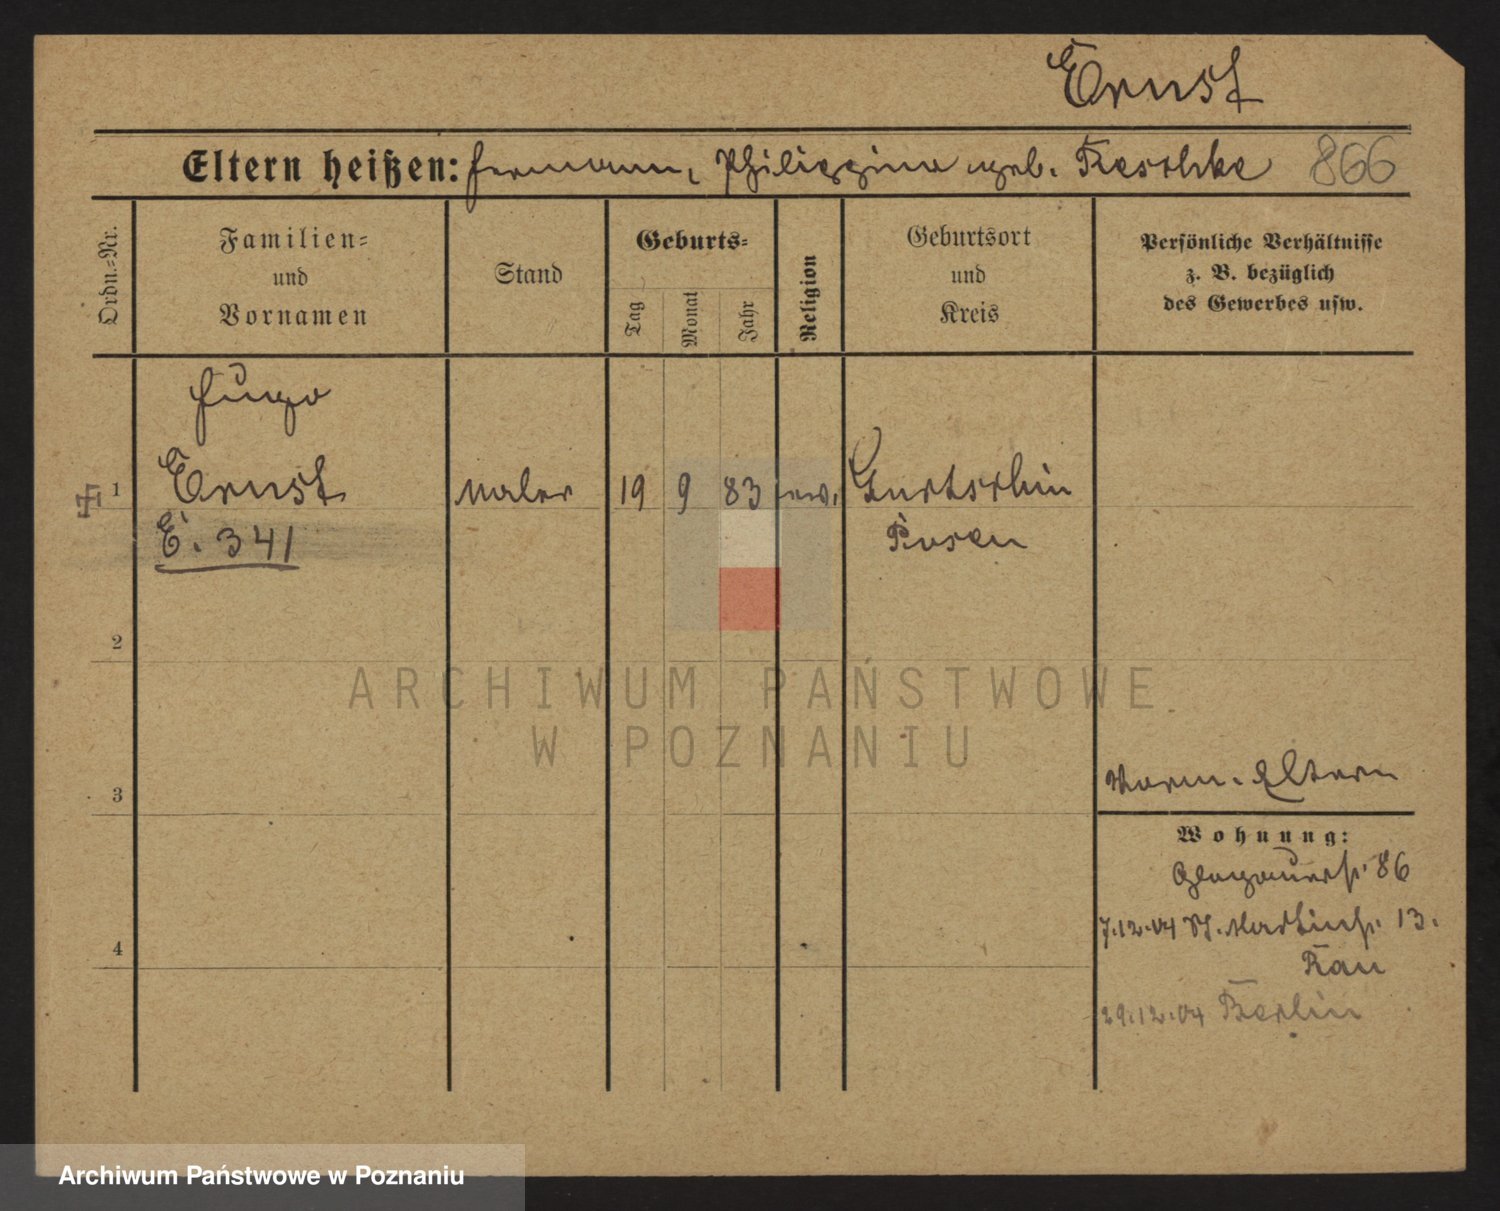 Ernst
Eltern heißen: Hermann, Philippine geb. Reschke 866
Ordn.-Nr.
Familien-
und
Vornamen
Stand
Geburts-
Tag
Monat
Jahr
Religion
Geburtsort
und
Kreis
Persönliche Verhältnisse
z. B. bezüglich
des Gewerbes usw.
Hugo
1 Ernst Maler 19 9 83 ev. Gurtschin
E. 341 Posen
2
3
4
Eltern
Wohnung:
Glogauerstr. 86
7.12.04 St. Martinstr. 13.
Rau
29.12.04 Berlin
ARCHIWUM PAŃSTWOWE
W POZNANIU
Archiwum Państwowe w Poznaniu